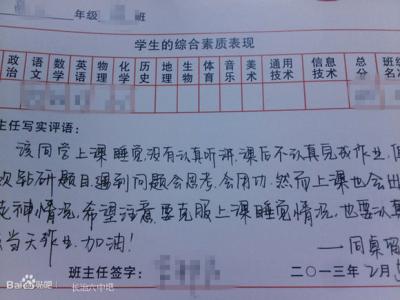 年级 班
学生的综合素质表现
政治 语文 数学 英语 物理 化学 历史 地理 生物 体育 音乐 美术 通用技术 信息技术 总分 班级名
主任写实评语：
该同学上课睡觉,没有认真听讲,课后不认真完成作业,但
欢钻研题目,遇到问题会思考,会用功.然而上课也会出
走神情况,希望注意,要克服上课睡觉情况,也要认真
当天作业.加油!
——同桌留
班主任签字：
二○一三年 2月
Bai贴吧 长治六中吧